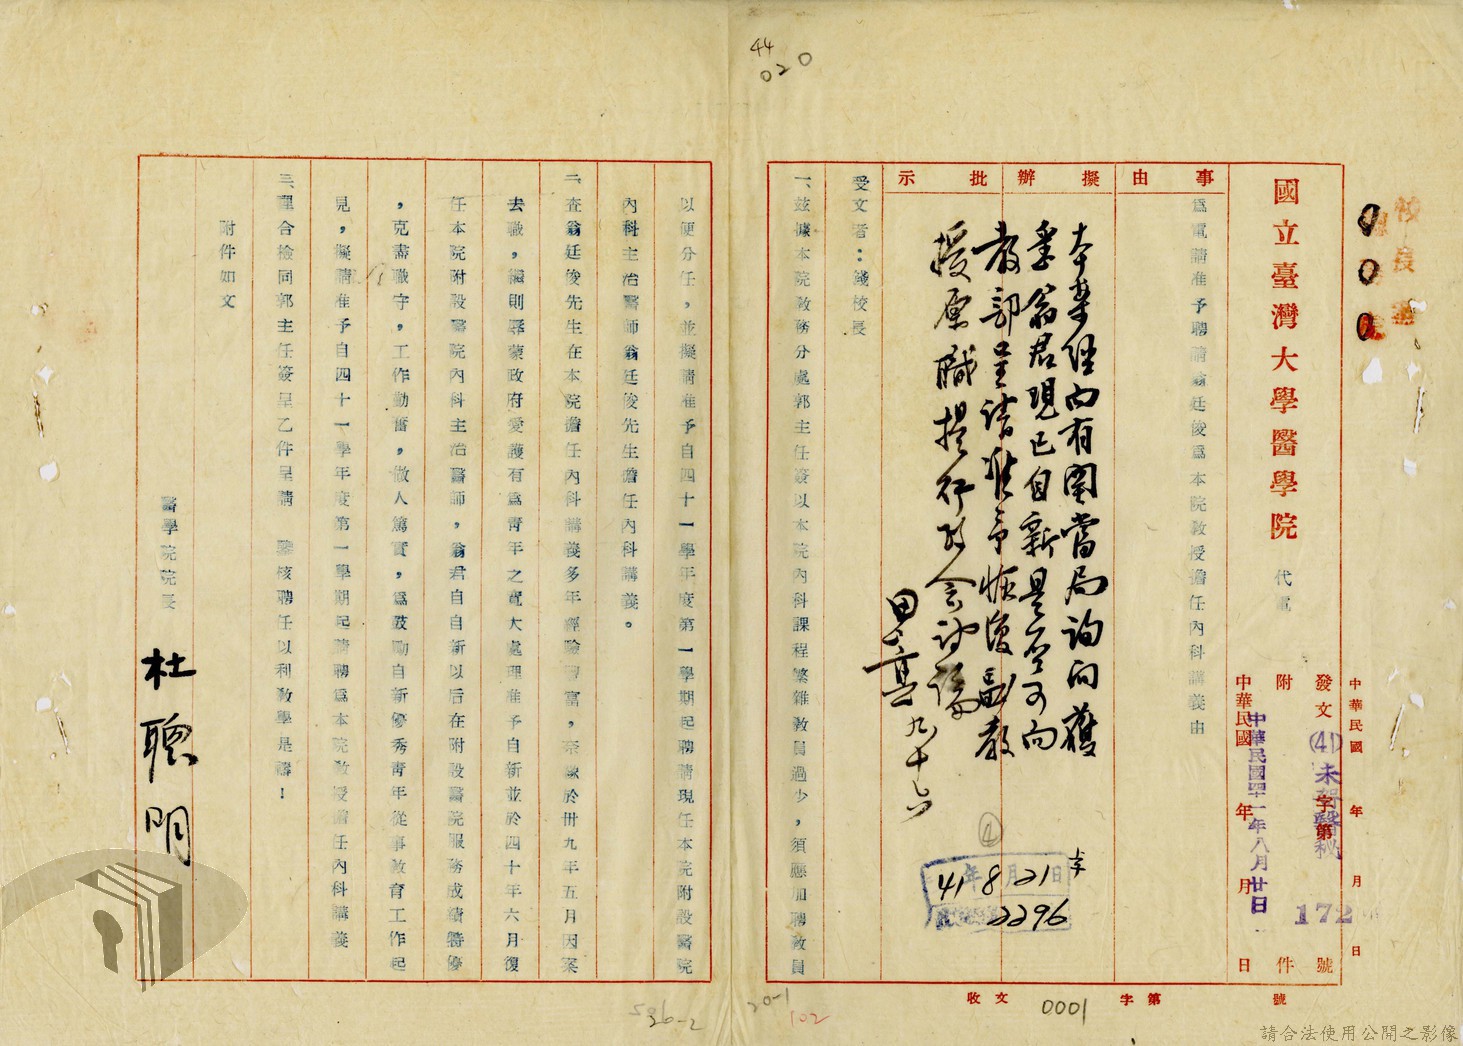 44
020
校長室
國立臺灣大學醫學院 代電
中華民國 年 月 日
發文 字第 號
(41)未 醫秘 172
附件
中華民國 年 月 日
中華民國四十一年八月廿日
事由
擬辦
批示
為電請准予聘請翁廷俊為本院教授擔任內科講義由
本案經向有關當局詢問獲
悉翁君現已自新是否可向
教部呈請准予恢復副教
授原職提行政會討論
九、十六
41年8月21日
2296
受文者：錢校長
一、茲據本院教務分處郭主任簽以本院內科課程繁雜教員過少，須應加聘教員
收文 字第 號
0001
以便分任，並擬請准予自四十一學年度第一學期起聘請現任本院附設醫院
內科主治醫師翁廷俊先生擔任內科講義。
二、查翁廷俊先生在本院擔任內科講義多年經驗豐富，奈緣於卅九年五月因案
去職，繼則尋蒙政府愛護有為青年之寬大處理准予自新並於四十年六月復
任本院附設醫院內科主治醫師，翁君自自新以后在附設醫院服務成績特優
，克盡職守，工作勤奮，做人篤實，為鼓勵自新優秀青年從事教育工作起
見，擬請准予自四十一學年度第一學期起請聘為本院教授擔任內科講義
三、理合檢同郭主任簽呈乙件呈請 鑒核聘任以利教學是禱！
附件如文
醫學院院長 杜聰明
26-2
20-1
102
請合法使用公開之影像